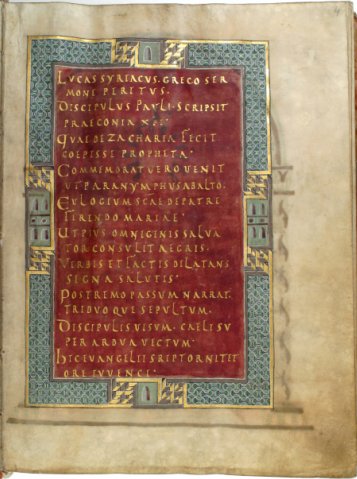 LUCAS SYRIACUS, GRECO SER
MONE PERITUS.
DISCIPULUS PAULI, SCRIPSIT
PRAECONIA XPI.
QUAE DE ZACHARIA FECIT
COEPISSE PROPHETA.
COMMEMORAT VERO VENIT
UT PARANYMPHUS AB ALTO.
EULOGIUM SCAE DE PATRE
FERENDO MARIAE.
UT PIUS OMNIGENIS SALVA
TOR CONSULIT AEGRIS.
VERBIS ET FACTIS DILATANS
SEGNA SALUTIS.
POSTREMO PASSUM NARRAT,
TRIDUOQUE SEPULTUM.
DISCIPULIS VISUM, CAELI SU
PER ARDUA VECTUM.
HIC EVANGELII SRIPTOR NITET
ORE IUVENCI.